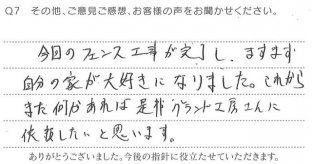 Q7 その他、ご意見ご感想、お客様の声をお聞かせください。
今回のフェンス工事が完了し、ますます
自分の家が大好きになりました。これから
また何かあれば是非グラント工房さんに
依頼したいと思います。
ありがとうございました。今後の指針に役立たせていただきます。